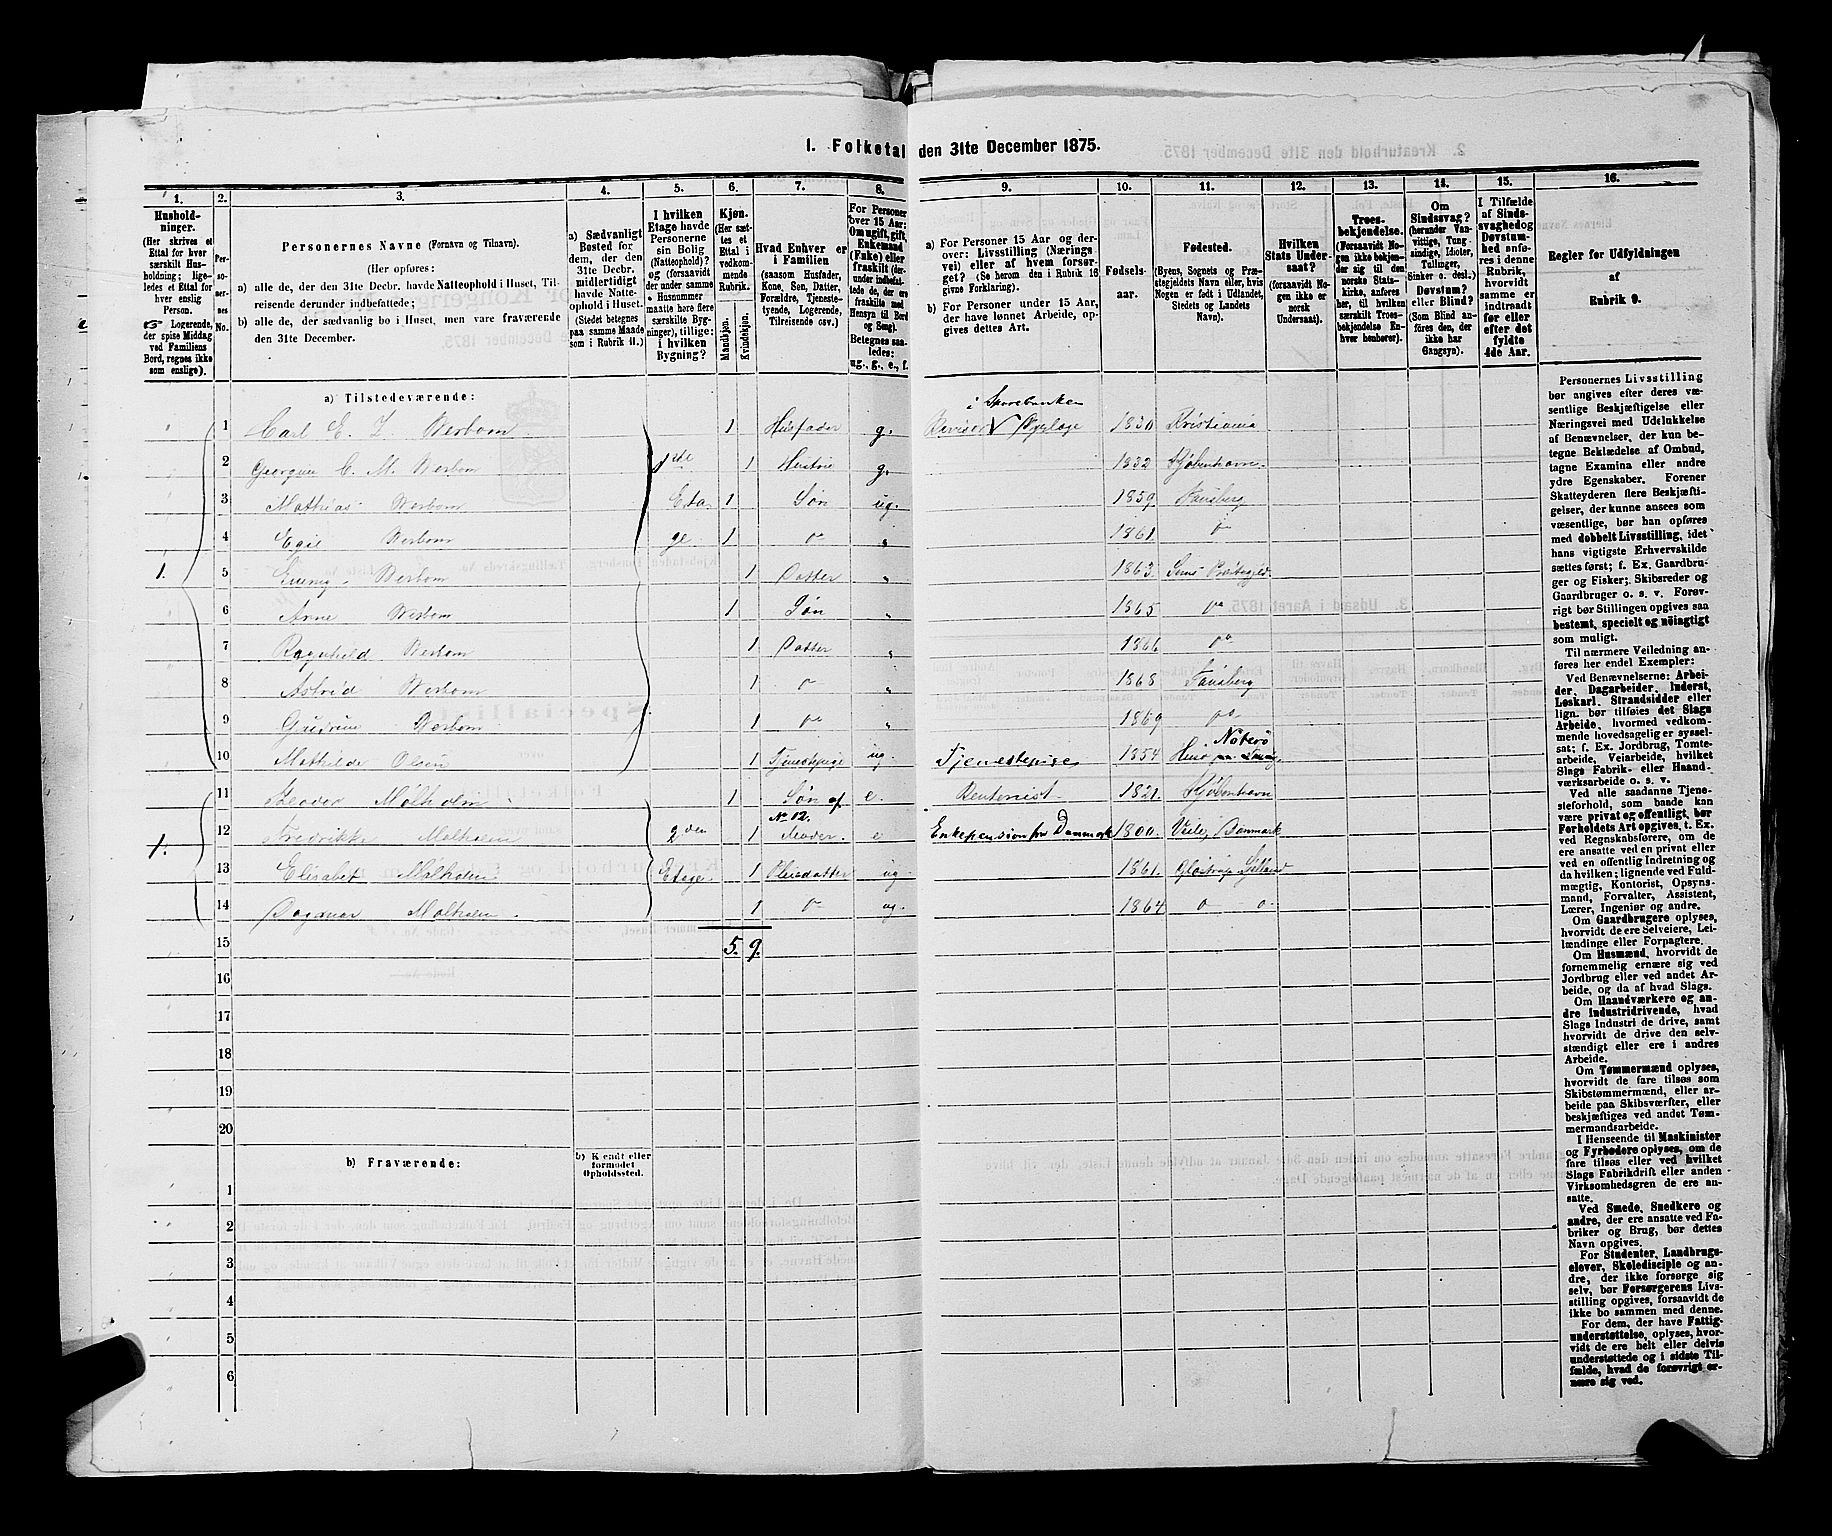 1. Folketal den 31te December 1875.
1. 2. 3. 4. 5. 6. 7. 8. 9. 10. 11. 12. 13. 14. 15. 16.
Hushold-
ninger.
(Her skrives et
Ettal for hver
særskilt Hus-
holdning; lige-
ledes et Ettal for
hver enslig
Person.
Logerende,
der spise Middag
ved Familiens
Bord, regnes ikke
som enslige).
Per-
so-
ner-
nes
No.
Personernes Navne (Fornavn og Tilnavn).
(Her opføres:
a) alle de, der den 31te Decbr. havde Natteophold i Huset, Til-
reisende derunder indbefattede;
b) alle de, der sædvanlig bo i Huset, men vare fraværende
den 31te December.
a) Sædvanligt
Bosted for
dem, der den
31te Decbr.
midlertidigt
havde Natte-
ophold i Huset.
(Stedet betegnes
paa samme Maade
som i Rubrik 11.)
I hvilken
Etage havde
Personerne
sin Bolig
(Natteophold)?
og (forsaavidt
der under samme
Husnummer
maatte høre flere
særskilte Byg-
ninger), tillige:
i hvilken
Bygning?
Kjøn.
(Her sæt-
tes et
Ettal i
vedkom-
mende
Rubrik.
Mandkjøn.
Kvindekjøn.
Hvad Enhver er
i Familien
(saasom Husfader,
Kone, Søn, Datter,
Forældre, Tjeneste-
tyende, Logerende,
Tilreisende osv.)
For Personer
over 15 Aar:
Om ugift, gift,
Enkemand
(Enke) eller
fraskilt (der-
under indbefat-
tede de, der ere
fraskilte med
Hensyn til Bord
og Seng).
Betegnes saa-
ledes:
ug., g., e., f.
a) For Personer 15 Aar og der-
over: Livsstilling (Nærings-
vei) eller af hvem forsør-
get? (Se herom den i Rubrik 16
givne Forklaring).
b) For Personer under 15 Aar,
der have lønnet Arbeide, op-
gives dettes Art.
Fødsels-
aar.
Fødested.
(Byens, Sognets og Præ-
stegjeldets Navn eller, hvis
Nogen er født i Udlandet,
Stedets og Landets
Navn).
Hvilken
Stats Under-
saat?
(forsaavidt No-
gen ikke er
norsk
Undersaat).
Troes-
bekjendelse.
(Forsaavidt No-
gen ikke bekjen-
der sig til den
norske Stats-
kirke, anføres
her, til hvilken
særskilt Troes-
bekjendelse En-
hver henhører).
Om
Sindssvag?
(herunder Van-
vittige, Tung-
sindige, Idioter,
Tullinger,
Sinker o. desl.)
Døvstum?
eller Blind?
(Som Blind an-
føres den, der
ikke har
Gangsyn).
I Tilfælde
af Sinds-
svaghed og
Døvstum-
hed anfø-
res i denne
Rubrik,
hvorvidt
samme er
indtraadt
før eller
efter det
fyldte
4de Aar.
Regler for Udfyldningen
af
Rubrik 9.
a) Tilstedeværende:
i Sparebanken
1 Carl E. Werbom 1 Husfader g. 1830 Kristiania
2 C. M. Werbom 1ste 1 Hustrue g. 1832 Kjøbenhavn
3 Mathias Werbom Eta- 1 Søn ug. 1859 Tønsberg
4 Egil Werbom ge 1 do „ 1861 do
1. 5 Werbom 1 Datter „ 1863 Sems
6 Arne Werbom 1 Søn „ 1865 do
7 Ragnhild Werbom 1 Datter „ 1866 do
8 Astrid Werbom 1 do „ 1868 Tønsberg
9 Gudrun Werbom 1 do 1869 do
Nøterø
10 Mathilde Olsen 1 Tjenestepige ug. Tjenestepige 1854
11 Mølholm 1 Søn af No 12. e Rentenist 1821 Kjøbenhavn
1. 12 Fredrikke Mølholm 2den 1 Moder e Enkepension fra Danmark 1800 Veile, Danmark
13 Elisabet Mølholm Etage 1 Pleiedatter ug. 1861 Glostrup
14 Dagmar Mølholm 1 do ug. 1864 do do
15 5. 9.
16
17
18
19
20
b) Fraværende:
b) Kjendt eller
formodet
Opholdssted.
1
2
3
4
5
6
Personernes Livsstilling
bør angives efter deres væ-
sentlige Beskjæftigelse eller
Næringsvei med Udelukkelse
af Benævnelser, der kun be-
tegne Beklædelse af Ombud,
tagne Examina eller andre
ydre Egenskaber. Forener
Skatteyderen flere Beskjæfti-
gelser, der kunne ansees som
væsentlige, bør han opføres
med dobbelt Livsstilling, idet
hans vigtigste Erhvervskilde
sættes først; f. Ex. Gaardbru-
ger og Fisker; Skibsreder og
Gaardbruger o. s. v. Forøv-
rigt bør Stillingen opgives saa
bestemt, specielt og nøiagtigt
som muligt.
Til nærmere Veiledning an-
føres her endel Exempler:
Ved Benævnelserne: Arbei-
der, Dagarbeider, Inderst,
Løskarl, Strandsidder eller
lign. bør tilføies det Slags
Arbeide, hvormed vedkom-
mende hovedsagelig er syssel-
sat; f. Ex. Jordbrug, Tomte-
arbeide, Veiarbeide, hvilket
Slags Fabrik- eller Haand-
værksarbeide o. s. v.
Ved alle saadanne Tjene-
steforhold, som baade kan
være privat og offentligt, bør
Forholdets Art opgives, t. Ex.
ved Regnskabsførere, om de
ere ansatte ved en privat eller
ved en offentlig Indretning og
da hvilken; lignende ved Fuld-
mægtig, Kontorist, Opsyns-
mand, Forvalter, Assistent,
Lærer, Ingeniør og andre.
Om Gaardbrugere oplyses,
hvorvidt de ere Selveiere, Lei-
lændinge eller Forpagtere.
Om Husmænd, hvorvidt de
fornemmelig ernære sig ved
Jordbrug eller ved andet Ar-
beide, og da af hvad Slags.
Om Haandværkere og an-
dre Industridrivende, hvad
Slags Industri de drive, samt
hvorvidt de drive den selv-
stændigt eller ere i andres
Arbeide.
Om Tømmermænd oplyses,
hvorvidt de fare tilsøs som
Skibstømmermænd, eller ar-
beide paa Skibsværfter, eller
beskjæftiges ved andet Tøm-
mermandsarbeide.
I Henseende til Maskinister
og Fyrbødere oplyses, om de
fare tilsøs eller ved hvilket
Slags Fabrikdrift eller anden
Virksomhedsgren de ere an-
satte.
Ved Smede, Snedkere og
andre, der ere ansatte ved Fa-
briker og Brug, bør dettes
Navn opgives.
For Studenter, Landbrugs-
elever, Skoledisciple og an-
dre, der ikke forsørge sig
selv, bør Forsørgerens Livs-
stilling opgives, forsaavidt de
ikke bo sammen med denne.
For dem, der have Fattig-
understøttelse, oplyses, hvor-
vidt de ere helt eller delvis
understøttede og i sidste Til-
fælde, hvad de forøvrigt er-
nære sig ved.